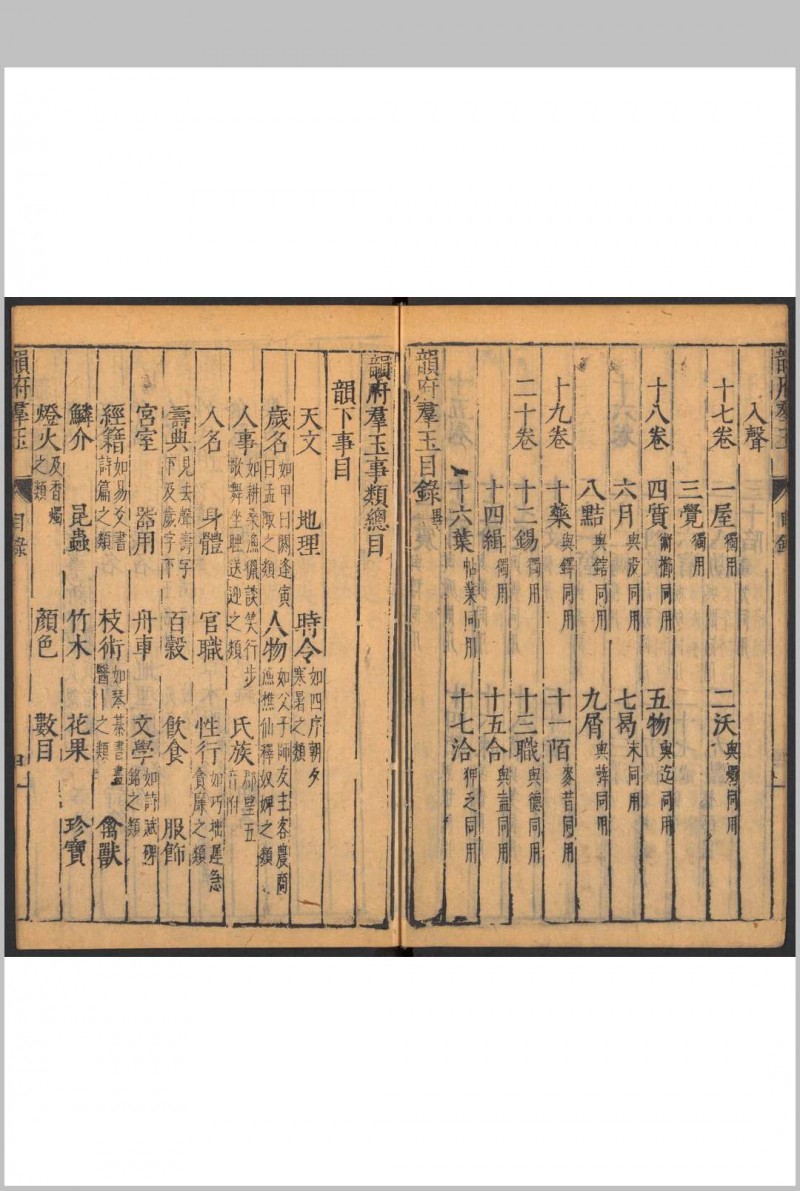 韻府羣玉
目錄
入聲
十七卷 一屋獨用 二沃與燭同用
三覺獨用
十八卷 四質術櫛同用 五物與迄同用
六月與沒同用 七曷末同用
八黠與鎋同用 九屑與薛同用
十九卷 十藥與鐸同用 十一陌麥昔同用
二十卷 十二錫獨用 十三職與德同用
十四緝獨用 十五合與盍同用
十六葉帖業同用 十七洽狎乏同用
韻府羣玉目錄畢
韻府羣玉事類總目
韻下事目
天文 地理 時令如四序朝夕寒暑之類
歲名如甲曰閼逢寅曰孟陬之類 人物如父子師友主客農商漁樵仙釋奴婢之類
人事如耕桑漁獵談笑行步歌舞坐睡送迎之類 氏族郡望五音附
人名 身體 官職 性行如巧拙遲急貪廉之類
壽典見去聲壽字下及歲字下 百穀 飲食 服飾
宮室 器用 舟車 文學如詩賦碑銘之類
經籍如易爻書詩篇之類 技術如琴棊書畫醫卜之類 禽獸
鱗介 昆蟲 竹木 花果 珍寶
燈火及香燭之類 顏色 數目
韻府羣玉
目錄